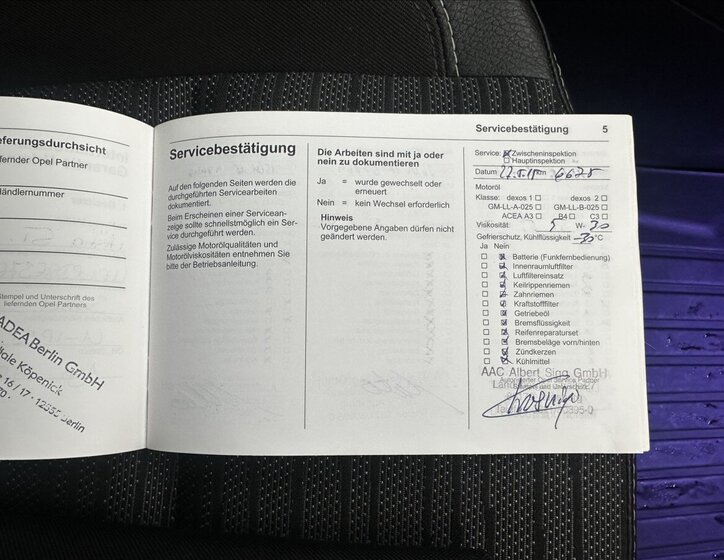 eferungsdurchsicht
efernder Opel Partner
ändlernummer
Stempel und Unterschrift des
liefernden Opel Partners
ADEA Berlin GmbH
Köpenick
16 / 17 · 12555 Berlin
Servicebestätigung
Auf den folgenden Seiten werden die
durchgeführten Servicearbeiten
dokumentiert.
Beim Erscheinen einer Servicean-
zeige sollte schnellstmöglich ein Ser-
vice durchgeführt werden.
Zulässige Motorölqualitäten und
Motorölviskositäten entnehmen Sie
bitte der Betriebsanleitung.
Die Arbeiten sind mit ja oder
nein zu dokumentieren
Ja = wurde gewechselt oder
erneuert
Nein = kein Wechsel erforderlich
Hinweis
Vorgegebene Angaben dürfen nicht
geändert werden.
Servicebestätigung 5
Service: Zwischeninspektion
Hauptinspektion
Datum
Motoröl
Klasse: dexos 1 dexos 2
GM-LL-A-025 GM-LL-B-025
ACEA A3 B4 C3
Viskosität: 5 W- 30
Gefrierschutz, Kühlflüssigkeit -30 °C
Ja Nein
Batterie (Funkfernbedienung)
Innenraumluftfilter
Luftfiltereinsatz
Keilrippenriemen
Zahnriemen
Kraftstofffilter
Getriebeöl
Bremsflüssigkeit
Reifenreparaturset
Bremsbeläge vorn/hinten
Zündkerzen
Kühlmittel
AAC Albert Sigg GmbH